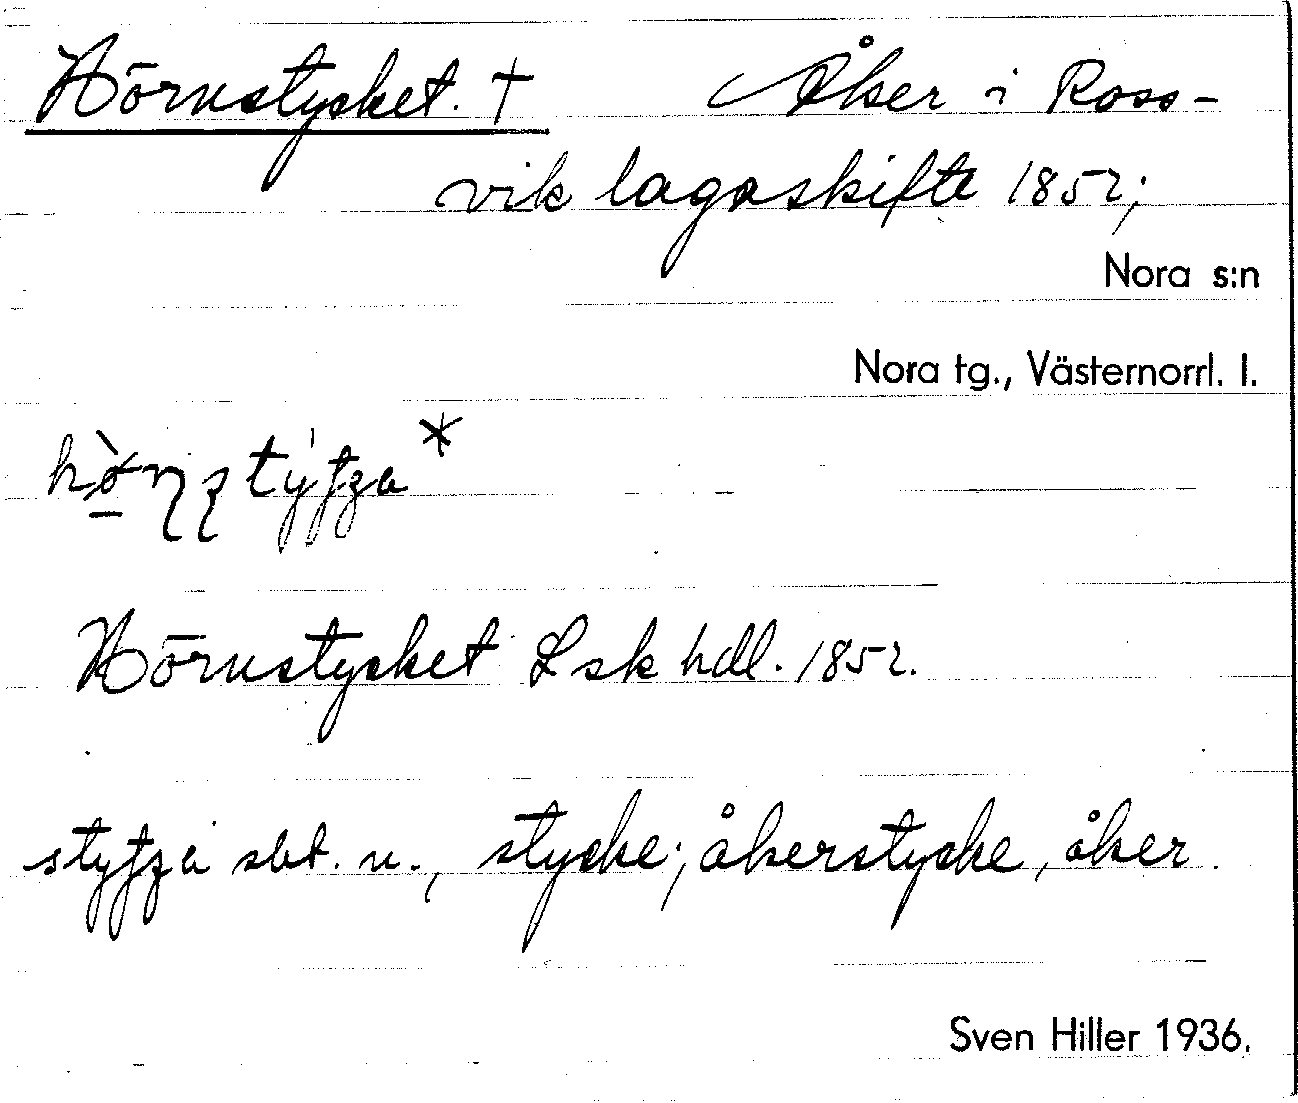 Hörnstycket. † Åker i Ross-
vik lagaskifte 1852;
Nora s:n
Nora tg., Västernorrl. l.
Hörnstycket Lsk hdl. 1852.
sbt. n., stycke; åkerstycke, åker.
Sven Hiller 1936.